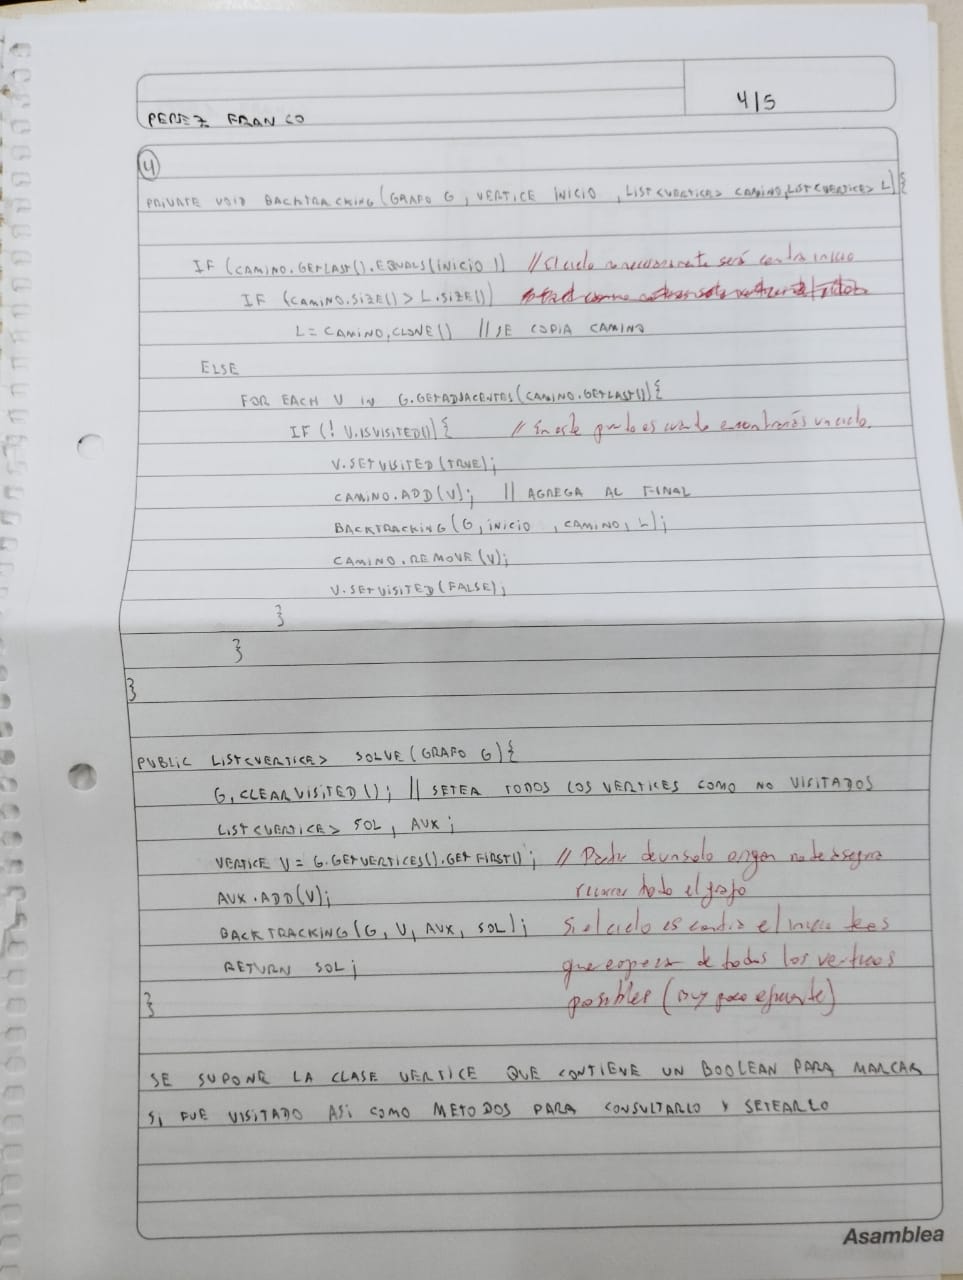 4/5
PEREZ FRANCO
4
PRIVATE VOID BACKTRACKING (GRAFO G, VERTICE INICIO, LIST<VERTICE> CAMINO, LIST<VERTICE> L){
IF (CAMINO.GETLAST().EQUALS(INICIO)) // El ciclo no necesariamente será contra inicio
IF (CAMINO.SIZE() > L.SIZE())
L = CAMINO.CLONE() // SE COPIA CAMINO
ELSE
FOR EACH V IN G.GETADJACENTES(CAMINO.GETLAST()){
IF (! V.ISVISITED()){ // En este punto es cuando encontrarás un ciclo.
V.SETVISITED(TRUE);
CAMINO.ADD(V); // AGREGA AL FINAL
BACKTRACKING(G, INICIO, CAMINO, L);
CAMINO.REMOVE(V);
V.SETVISITED(FALSE);
}
}
}
PUBLIC LIST<VERTICE> SOLVE (GRAFO G){
G.CLEARVISITED(); // SETEA TODOS LOS VERTICES COMO NO VISITADOS
LIST<VERTICE> SOL, AUX;
VERTICE V = G.GETVERTICES().GETFIRST(); // Partir de un solo origen no te asegura
AUX.ADD(V); recorrer todo el grafo
BACKTRACKING(G, V, AUX, SOL); Si el ciclo es contra el inicio
RETURN SOL; que empezar de todos los vertices
} posibles (muy poco eficiente)
SE SUPONE LA CLASE VERTICE QUE CONTIENE UN BOOLEAN PARA MARCAR
SI FUE VISITADO ASI COMO METODOS PARA CONSULTARLO Y SETEARLO
Asamblea